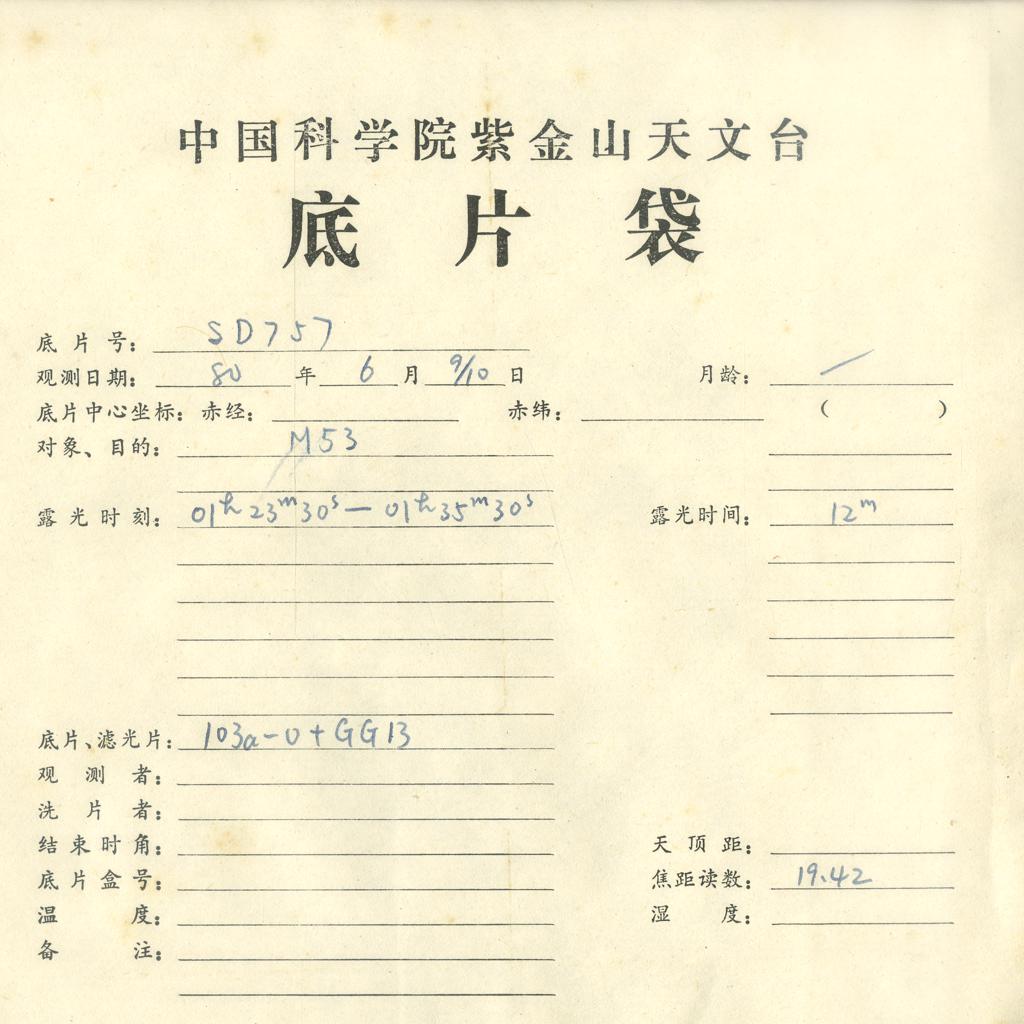 中国科学院紫金山天文台
底片袋
底片号： SD757
观测日期： 80 年 6 月 9/10 日 月龄： /
底片中心坐标：赤经： 赤纬： （ ）
对象、目的： M53
露光时刻： 01h23m30s—01h35m30s 露光时间： 12m
底片、滤光片： 103a-0+GG13
观测者：
洗片者：
结束时角： 天顶距：
底片盒号： 焦距读数： 19.42
温度： 湿度：
备注：